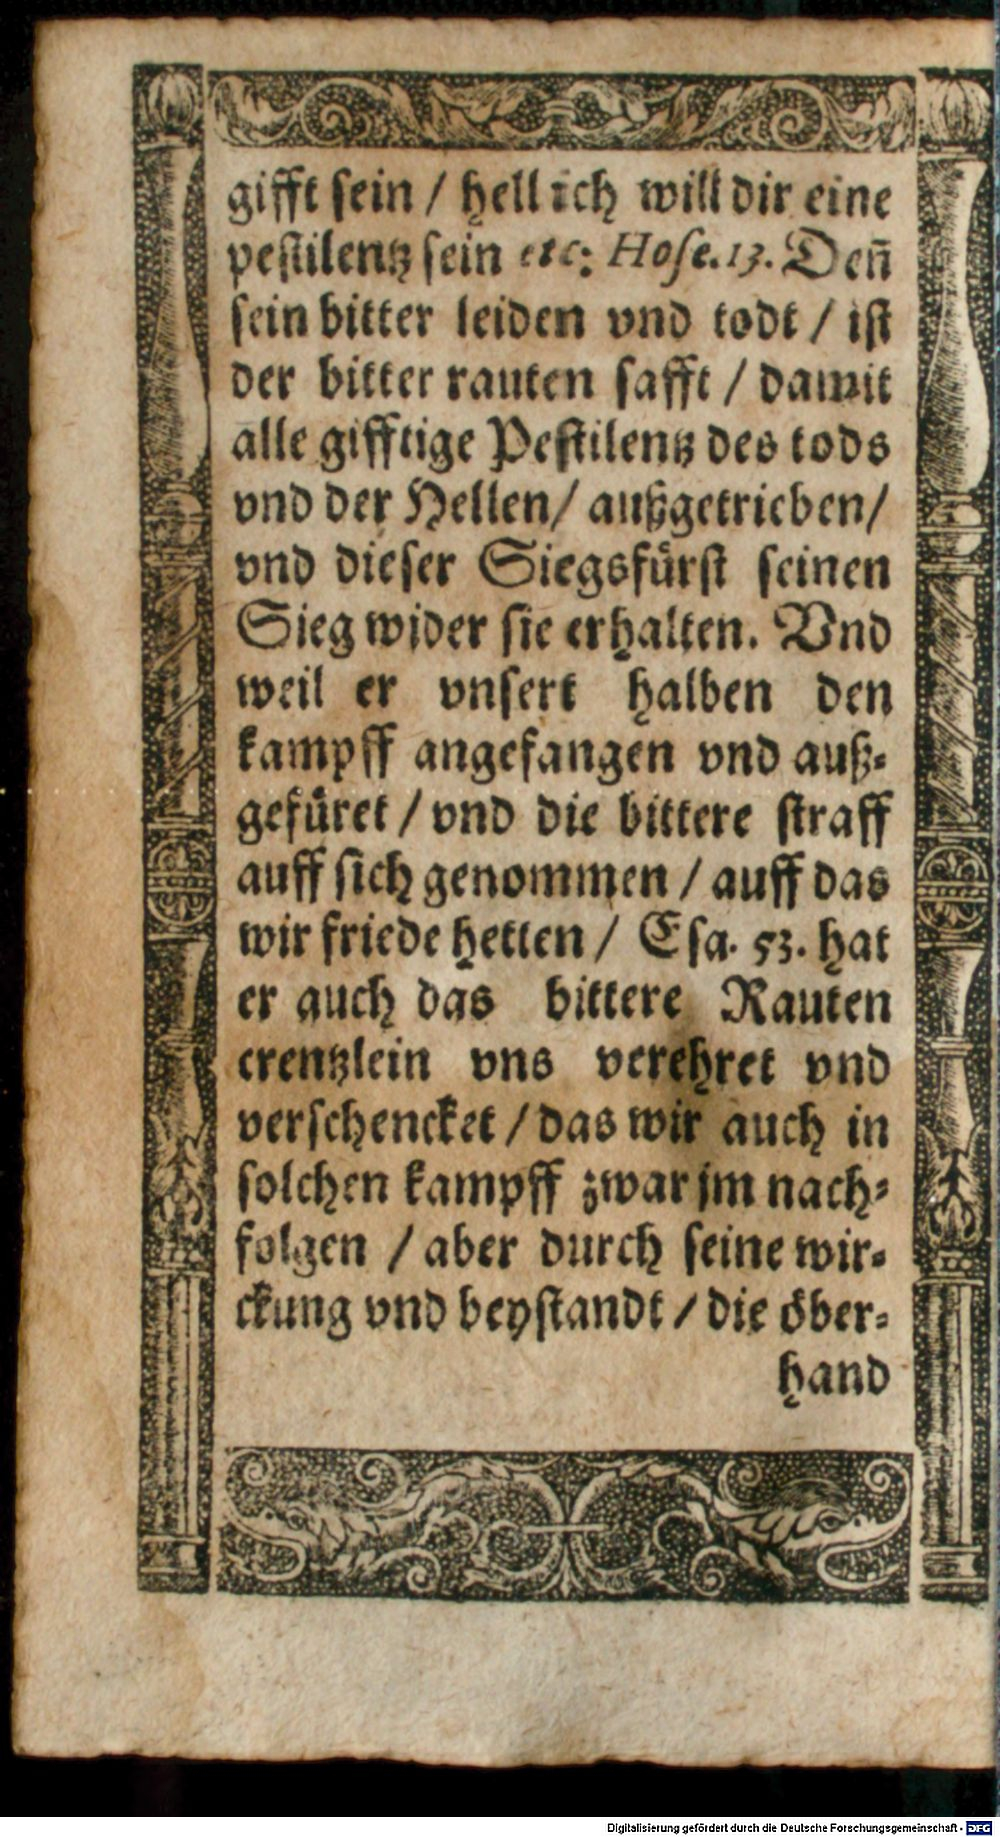 gifft sein / hell ich will dir eine
pestilentz sein etc: Hose. 13. Deñ
sein bitter leiden vnd todt / ist
der bitter rauten safft / damit
alle gifftige Pestilentz des tods
vnd der Hellen / außgetrieben /
vnd dieser Siegsfürst seinen
Sieg wider sie erhalten. Vnd
weil er vnsert halben den
kampff angefangen vnd auß-
gefüret / vnd die bittere straff
auff sich genommen / auff das
wir friede hetten / Esa. 53. hat
er auch das bittere Rauten
crentzlein vns verehret vnd
verschencket / das wir auch in
solchen kampff zwar jm nach-
folgen / aber durch seine wir-
ckung vnd beystandt / die öber-
hand
Digitalisierung gefördert durch die Deutsche Forschungsgemeinschaft - DFG